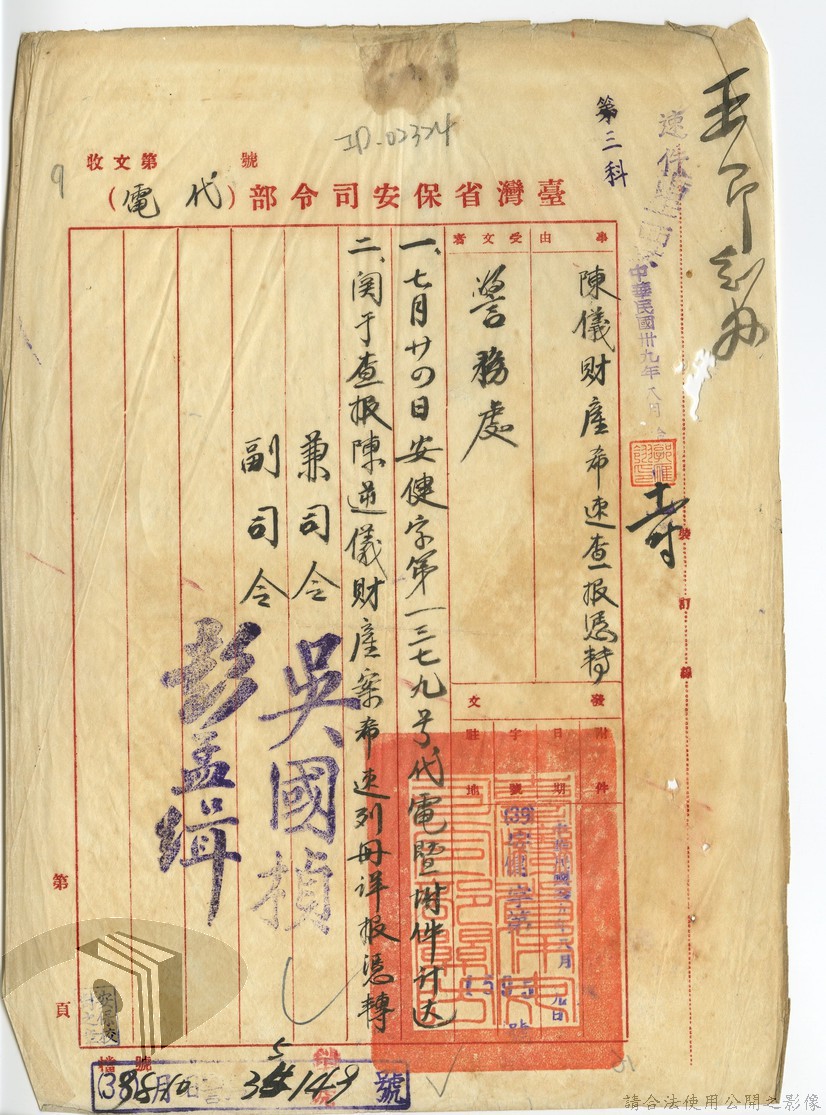 王即剋辦
速件
第三科
中華民國卅九年八月
ID-02324
9
收文第　號
臺灣省保安司令部（代電）
事由
陳儀財產希速查報憑轉
受文者
警務處
發文
附件
日期
中華民國卅九年八月九日
字號
(39)安傭字第1595號
駐地
一、七月廿四日安健字第一三七九号代電暨附件计达
二、関于查报陳逆儀財產案希速列册详报憑轉
兼司令
吳國楨
副司令
彭孟緝
裝訂線
第　頁
檔號
149號
請合法使用公開之影像